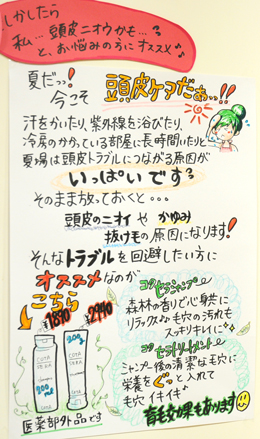 しかしたら
私…頭皮ニオウかも…?
と、お悩みの方にオススメ♪
夏だっ!
今こそ
頭皮ケアだぁっ!!
汗をかいたり、紫外線を浴びたり、
冷房のかかっている部屋に長時間いたりと
夏場は頭皮トラブルにつながる原因が
いっぱいです
そのまま放っておくと…
頭皮のニオイ や かゆみ
抜け毛の原因になります!
そんなトラブルを回避したい方に
オススメなのが
こちら
¥1890
¥2940
COTA
300
ml
COTA
200g
医薬部外品です
コタセラシャンプー
森林の香りで心身共に
リラックス♪毛穴の汚れも
スッキリキレイに
コタセラトリートメント
シャンプー後の清潔な毛穴に
栄養をぐっと入れて
毛穴イキイキ
育毛効果もあります